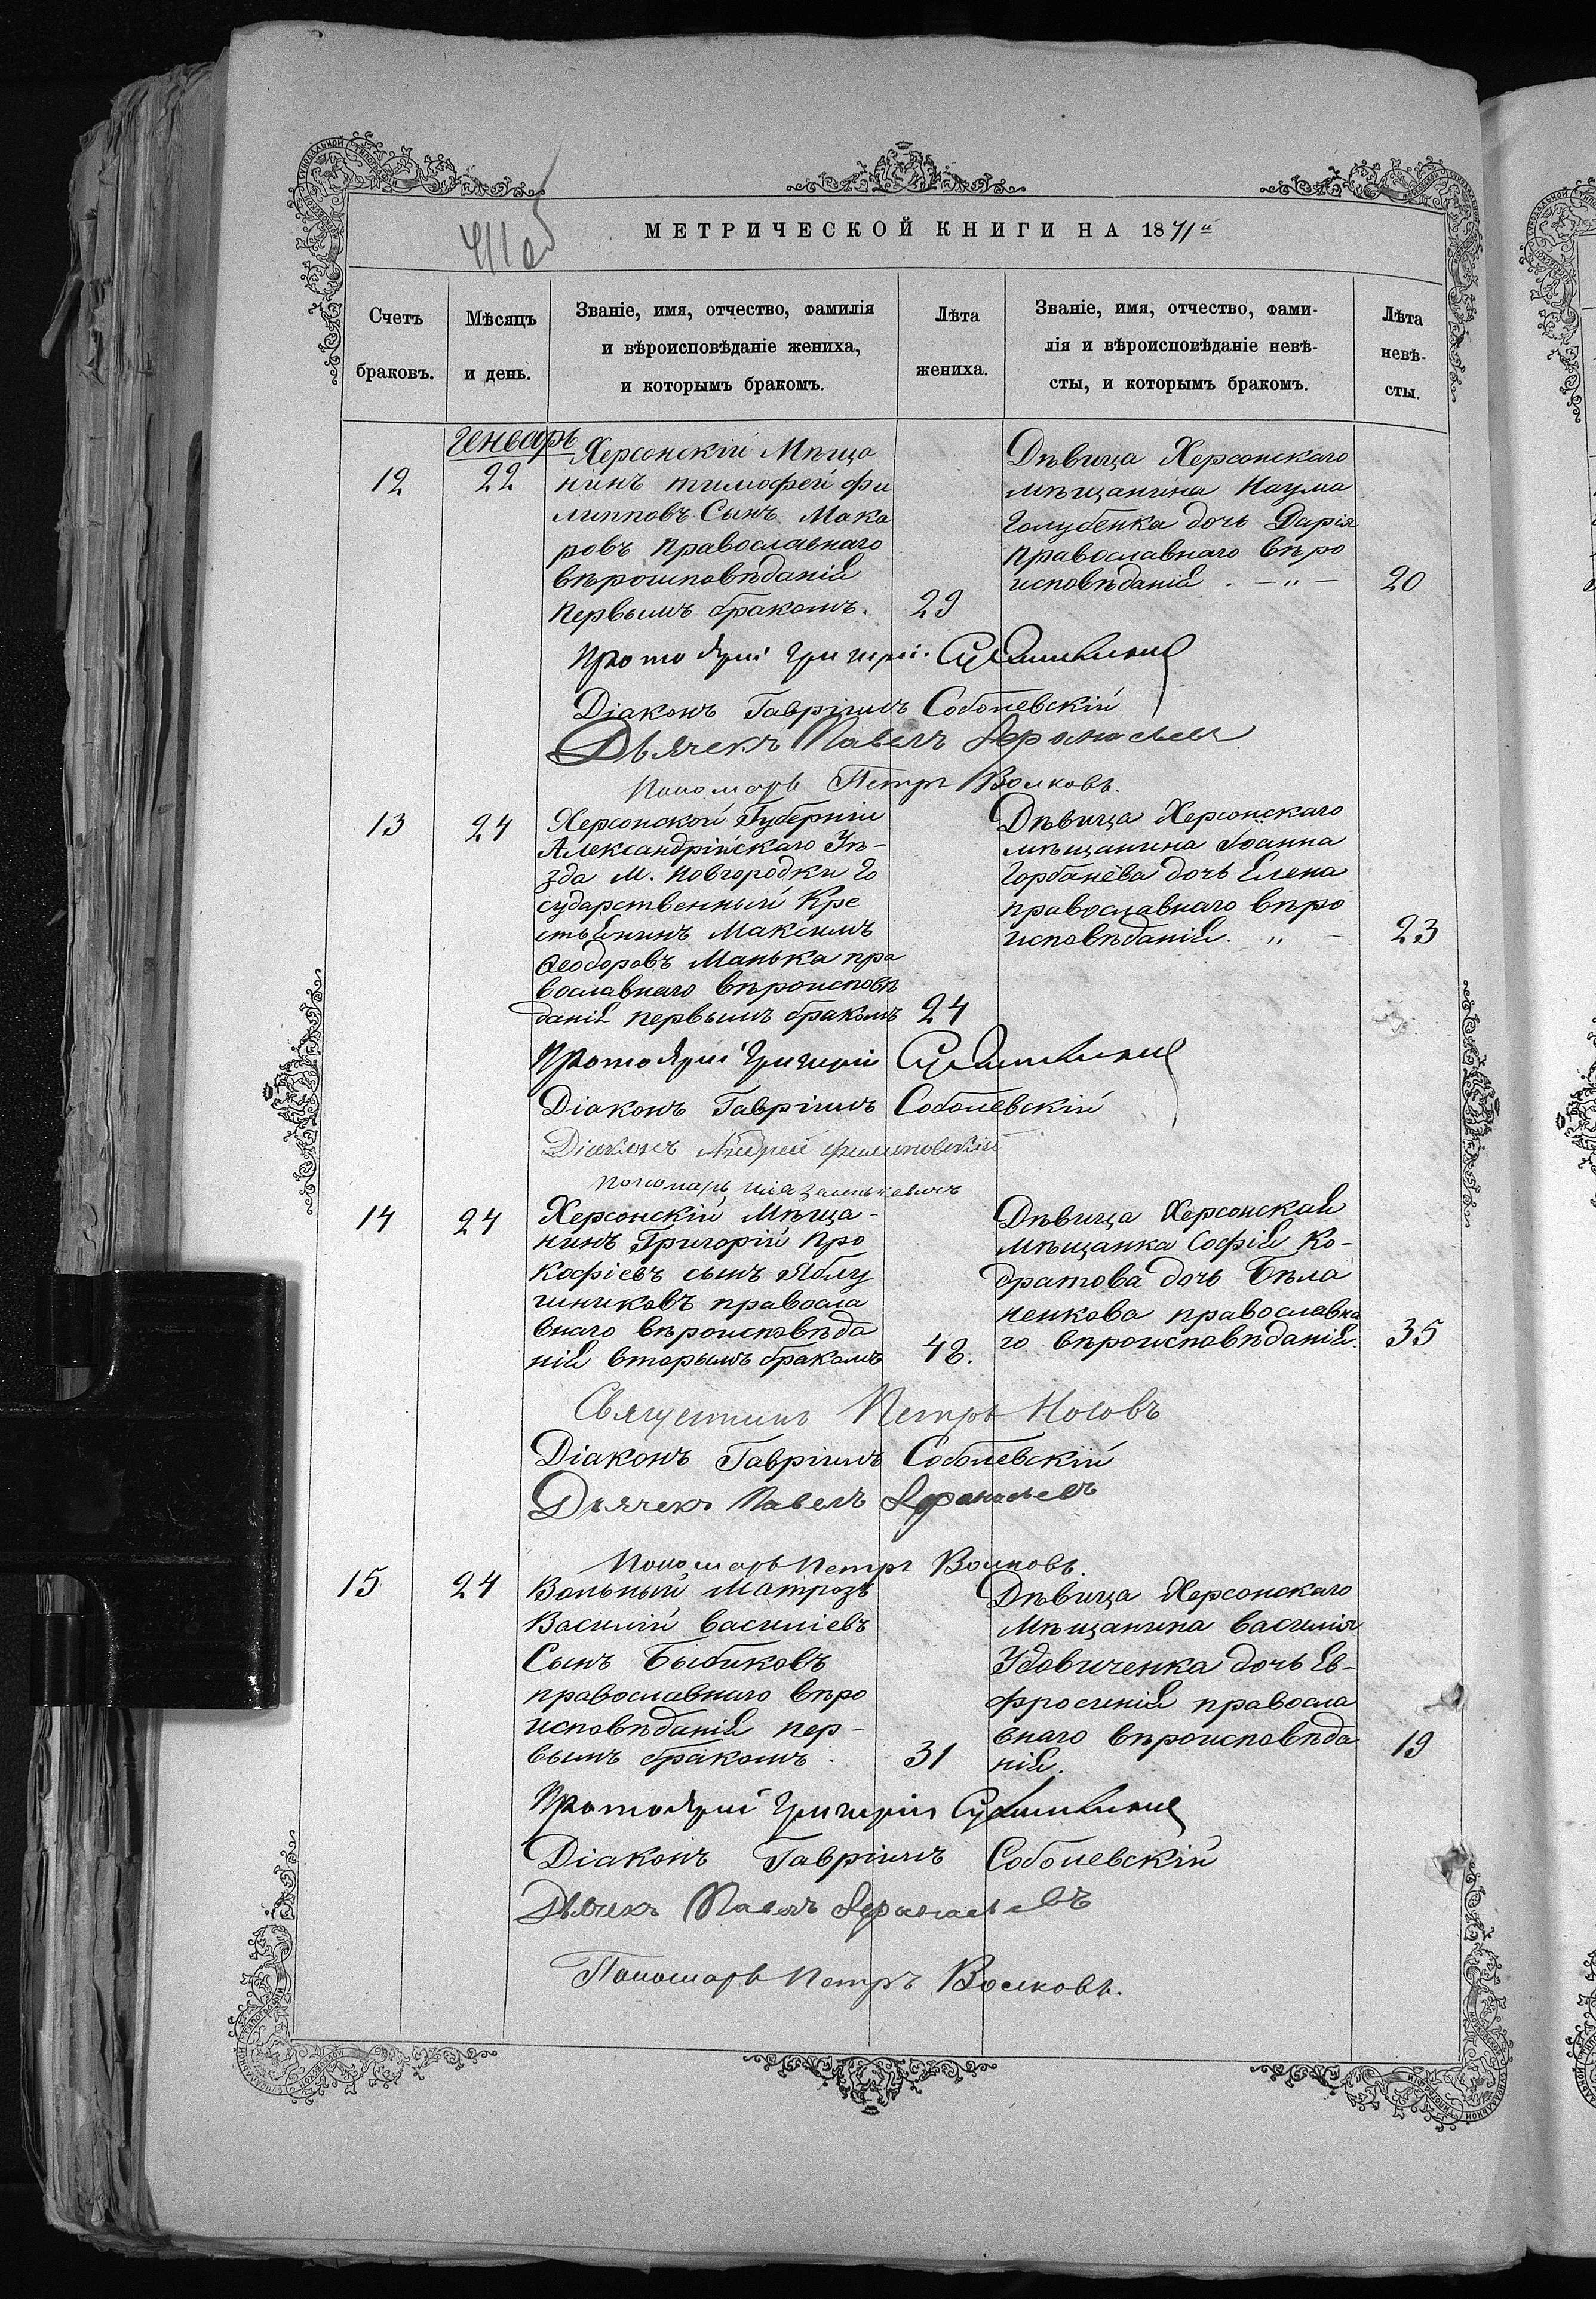 МЕТРИЧЕСКОЙ КНИГИ НА 1871й
Счетъ браковъ.
Мѣсяцъ и день.
Званіе, имя, отчество, фамилія
и вѣроисповѣданіе жениха,
и которымъ бракомъ.
Лѣта жениха.
Званіе, имя, отчество, фами-
лія и вѣроисповѣданіе невѣ-
сты, и которымъ бракомъ.
Лѣта невѣ-
сты.
Генварь
12
22
Херсонскій Мѣща
нинъ тимофей фи
липповъ Сынъ Мака
ровъ православнаго
вѣроисповѣданія
первымъ бракомъ.
29
Дѣвица Херсонскаго
мѣщанина Наума
Голубенка дочь Дарія
православнаго вѣро
исповѣданія . — „ —
20
Протоіерей Григорій
Діаконъ Гавріилъ Соболевскій
Дьячекъ Павелъ Афанасьевъ
Пономарь Петръ Волковъ.
13
24
Херсонской Губерніи
Александрійскаго Уѣ-
зда М. Новгородки Го
сударственный Кре
стьянинъ Максимъ
Ѳеодоровъ Манька пра
вославнаго вѣроисповѣ
данія первымъ бракомъ
24
Дѣвица Херсонскаго
мѣщанина Іоанна
Горбанёва дочь Елена
православнаго вѣро
исповѣданія. „ —
23
Протоіерей Григорій
Діаконъ Гавріилъ Соболевскій
Діаконъ Андрей
Пономарь
14
24
Херсонскій Мѣща-
нинъ Григорій Про
кофіевъ сынъ Яблу
шниковъ правосла
внаго вѣроисповѣда
нія вторымъ бракомъ
48.
Дѣвица Херсонская
мѣщанка Софія Ко-
дратова дочь Бѣла
ненкова православна
го вѣроисповѣданія.
35
Священникъ Петръ Носовъ
Діаконъ Гавріилъ Соболевскій
Дьячекъ Павелъ Афанасьевъ
Пономарь Петръ Волковъ.
15
24
Вольный Матрозъ
Василій василіевъ
Сынъ Бибиковъ
православнаго вѣро
исповѣданія пер-
вымъ бракомъ.
31
Дѣвица Херсонскаго
Мѣщанина василія
Удовиченка дочь Ев-
фросинія правосла
внаго вѣроисповѣда
нія.
19
Протоіерей Григорій
Діаконъ Гавріилъ Соболевскій
Дьячекъ Павелъ Афанасьевъ
Пономарь Петръ Волковъ.